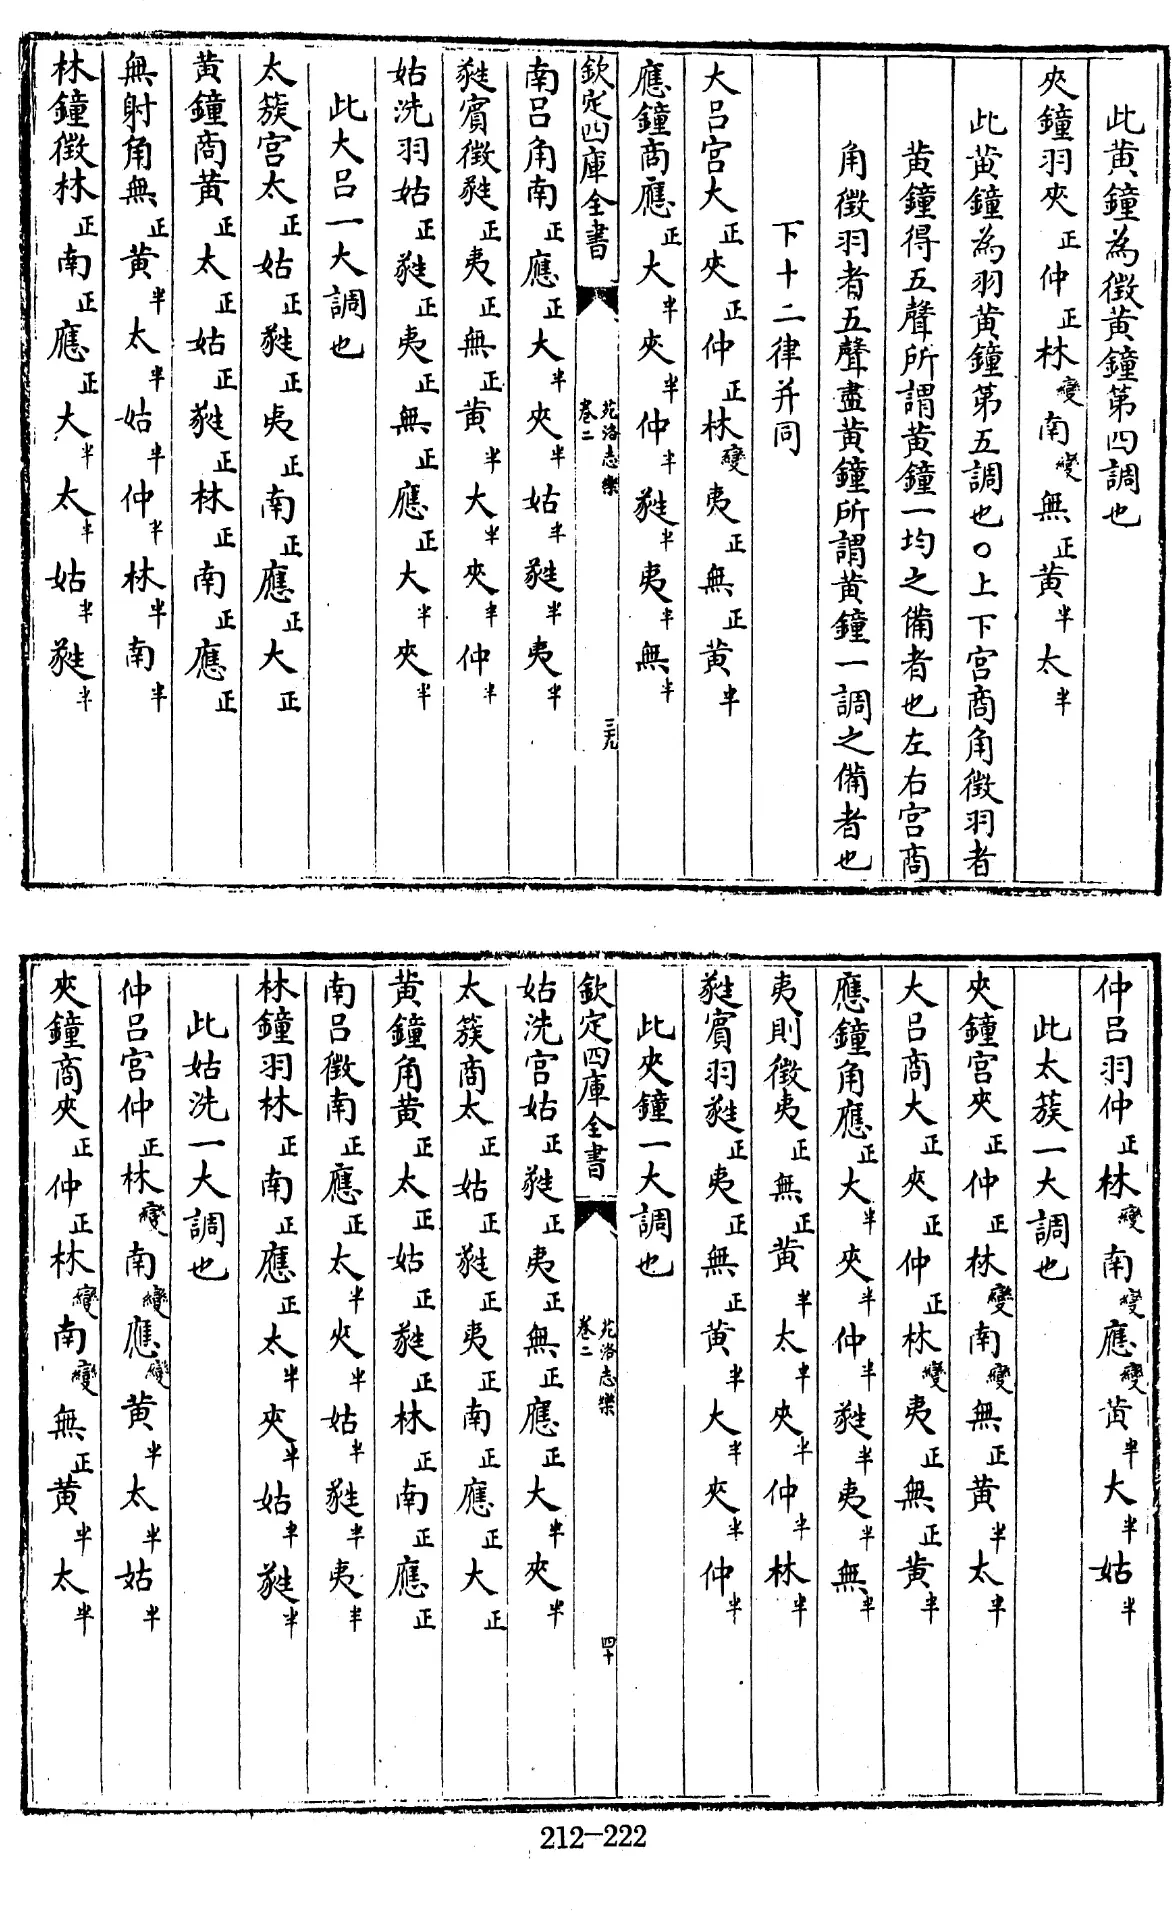 此黃鐘為徵黃鐘第四調也
夾鐘羽夾正仲正林變南變無正黃半太半
此黃鐘為羽黃鐘第五調也〇上下宮商角徵羽者
黃鐘得五聲所謂黃鐘一均之備者也左右宮商
角徵羽者五聲盡黃鐘所謂黃鐘一調之備者也
下十二律并同
大呂宮大正夾正仲正林變夷正無正黃半
應鐘商應正大半夾半仲半蕤半夷半無半
欽定四庫全書
苑洛志樂
卷二
三九
南呂角南正應正大半夾半姑半蕤半夷半
蕤賓徵蕤正夷正無正黃半大半夾半仲半
姑洗羽姑正蕤正夷正無正應正大半夾半
此大呂一大調也
太簇宮太正姑正蕤正夷正南正應正大正
黃鐘商黃正太正姑正蕤正林正南正應正
無射角無正黃半太半姑半仲半林半南半
林鐘徵林正南正應正大半太半姑半蕤半
仲呂羽仲正林變南變應變黃半大半姑半
此太蔟一大調也
夾鐘宮夾正仲正林變南變無正黃半太半
大呂商大正夾正仲正林變夷正無正黃半
應鐘角應正大半夾半仲半蕤半夷半無半
夷則徵夷正無正黃半太半夾半仲半林半
蕤賓羽蕤正夷正無正黃半大半夾半仲半
此夾鐘一大調也
欽定四庫全書
苑洛志樂
卷二
四十
姑洗宮姑正蕤正夷正無正應正大半夾半
太簇商太正姑正蕤正夷正南正應正大正
黃鐘角黃正太正姑正蕤正林正南正應正
南呂徵南正應正太半夾半姑半蕤半夷半
林鐘羽林正南正應正太半夾半姑半蕤半
此姑洗一大調也
仲呂宮仲正林變南變應變黃半太半姑半
夾鐘商夾正仲正林變南變無正黃半太半
212-222